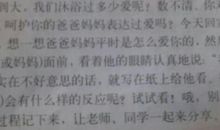 到大，我们沐浴过多少爱呢？数不清，你
呵护你的爸爸妈妈表达过爱吗？今天回
，想一想爸爸妈妈平时是怎么爱你的，然
或妈妈）面前，看着他的眼睛认真地说：“
实在不好意思的话，就写在纸上给他看。
）会有什么样的反应呢？试试看？哦，别
过程记下来，让老师、同学一起来分享